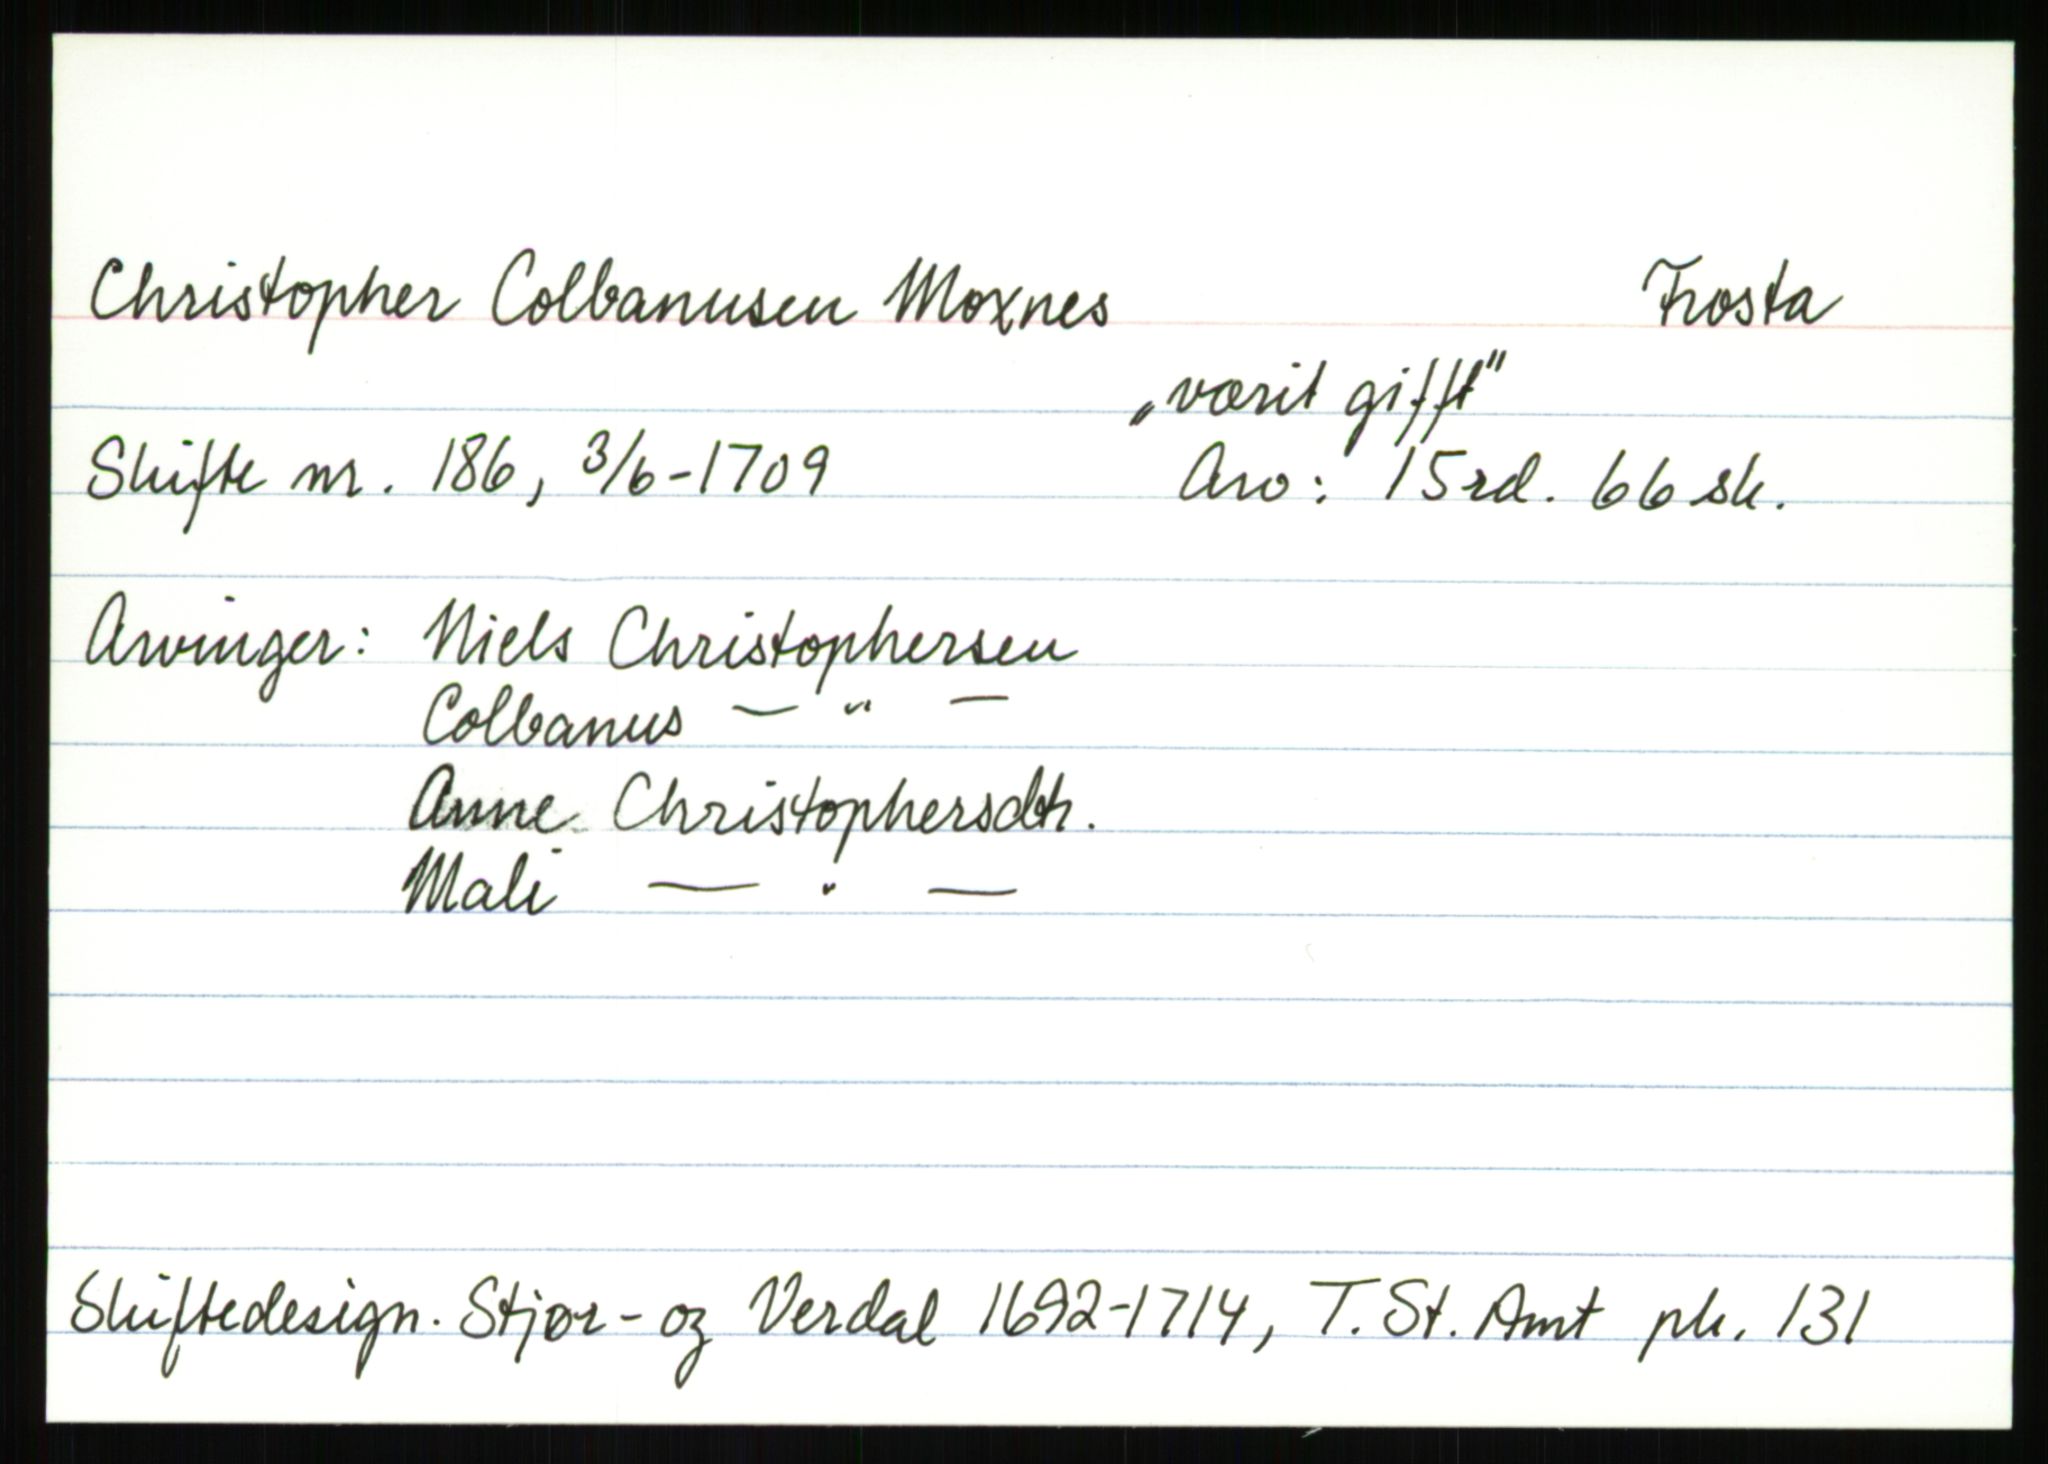 Christopher Colbanusen Moxnes Frosta
„værit gifft"
Skifte nr. 186, 3/6-1709 Arv: 15 rd. 66 sk.
Arvinger: Niels Christophersen
Colbanus — " —
Anne Christophersdtr.
Mali — " —
Skiftedesign. Stjør- og Verdal 1692-1714, T. St. Amt pk. 131